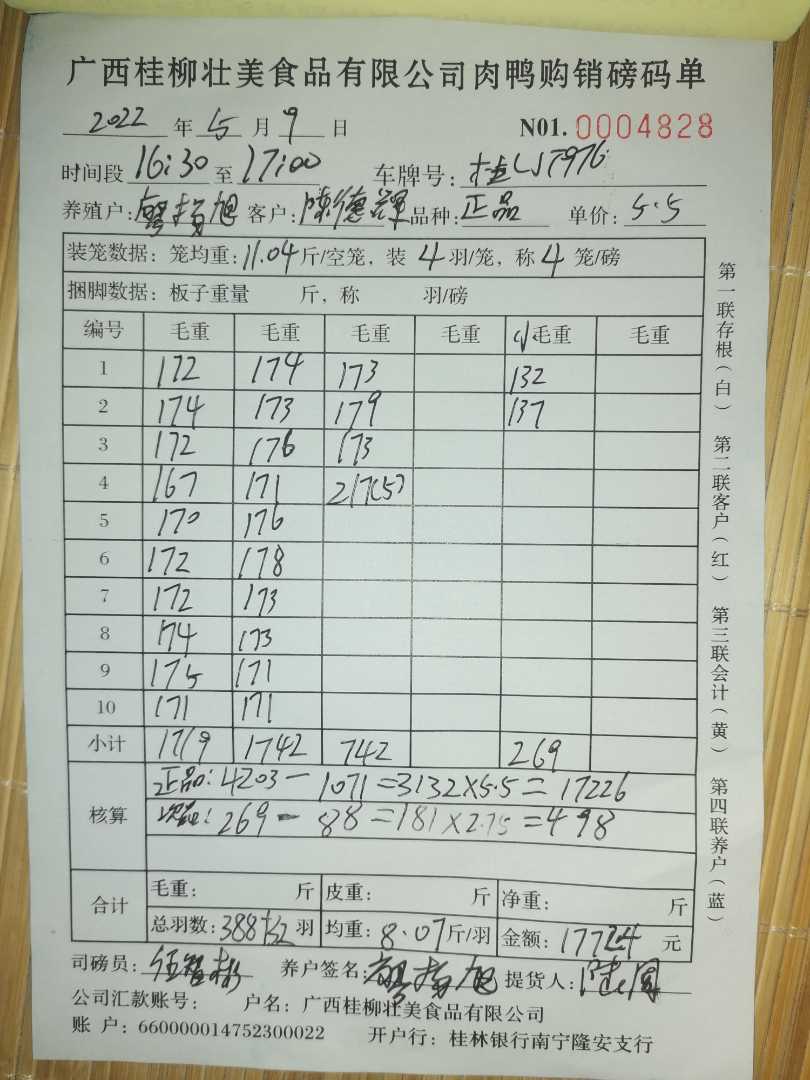 广西桂柳壮美食品有限公司肉鸭购销磅码单
2022 年 5 月 9 日 N01. 0004828
时间段 16:30 至 17:00 车牌号:
养殖户: 客户: 陈德译 品种: 正品 单价: 5.5
装笼数据: 笼均重: 11.04 斤/空笼, 装 4 羽/笼, 称 4 笼/磅
捆脚数据: 板子重量 斤, 称 羽/磅
编号 毛重 毛重 毛重 毛重 小毛重 毛重
1 172 174 173 132
2 174 173 179 137
3 172 176 173
4 167 171 217(5)
5 170 176
6 172 178
7 172 173
8 174 173
9 175 171
10 171 171
小计 1719 1742 742 269
核算
正品: 4203-1071=3132×5.5=17226
次品: 269-88=181×2.75=498
合计
毛重: 斤 皮重: 斤 净重: 斤
总羽数: 388 羽 均重: 8.07 斤/羽 金额: 17724 元
司磅员: 养户签名: 提货人:
公司汇款账号: 户名: 广西桂柳壮美食品有限公司
账 户: 660000014752300022 开户行: 桂林银行南宁隆安支行
第一联存根(白) 第二联客户(红) 第三联会计(黄) 第四联养户(蓝)